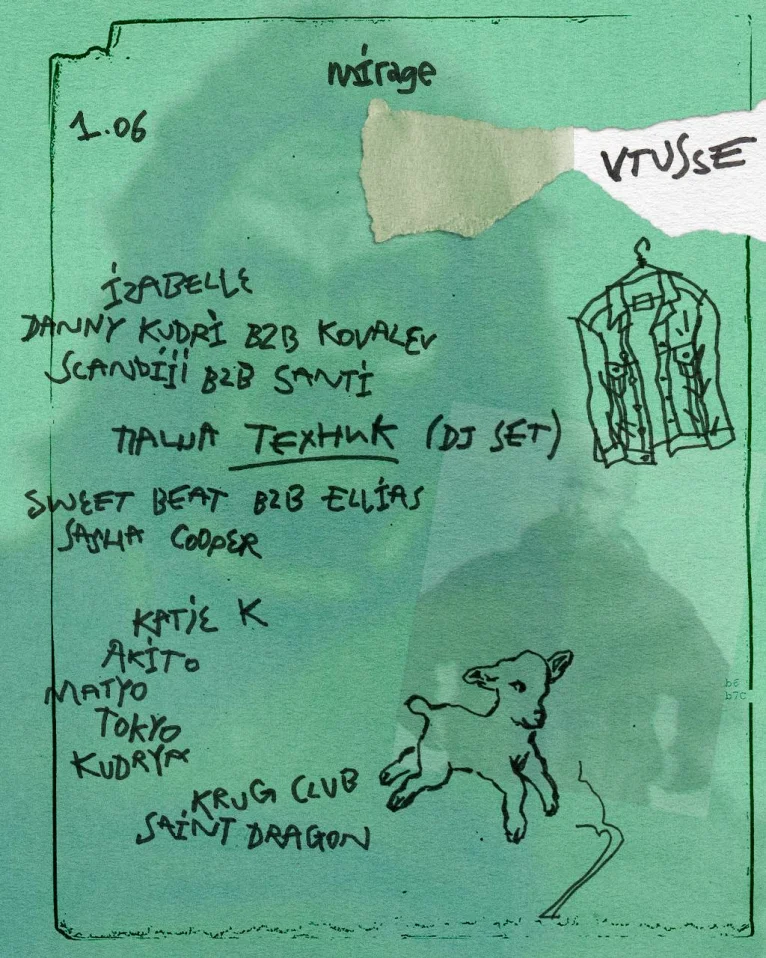 mirage
1.06
VTUSSE
IZABELLE
DANNY KUDRI B2B KOVALEV
SCANDIJI B2B SANTI
ПАША ТЕХНИК (DJ SET)
SWEET BEAT B2B ELLIAS
SASHA COOPER
KATJE K
AKITO
MATYO
TOKYO
KUDRYA
KRUG CLUB
SAINT DRAGON
b6
b7C